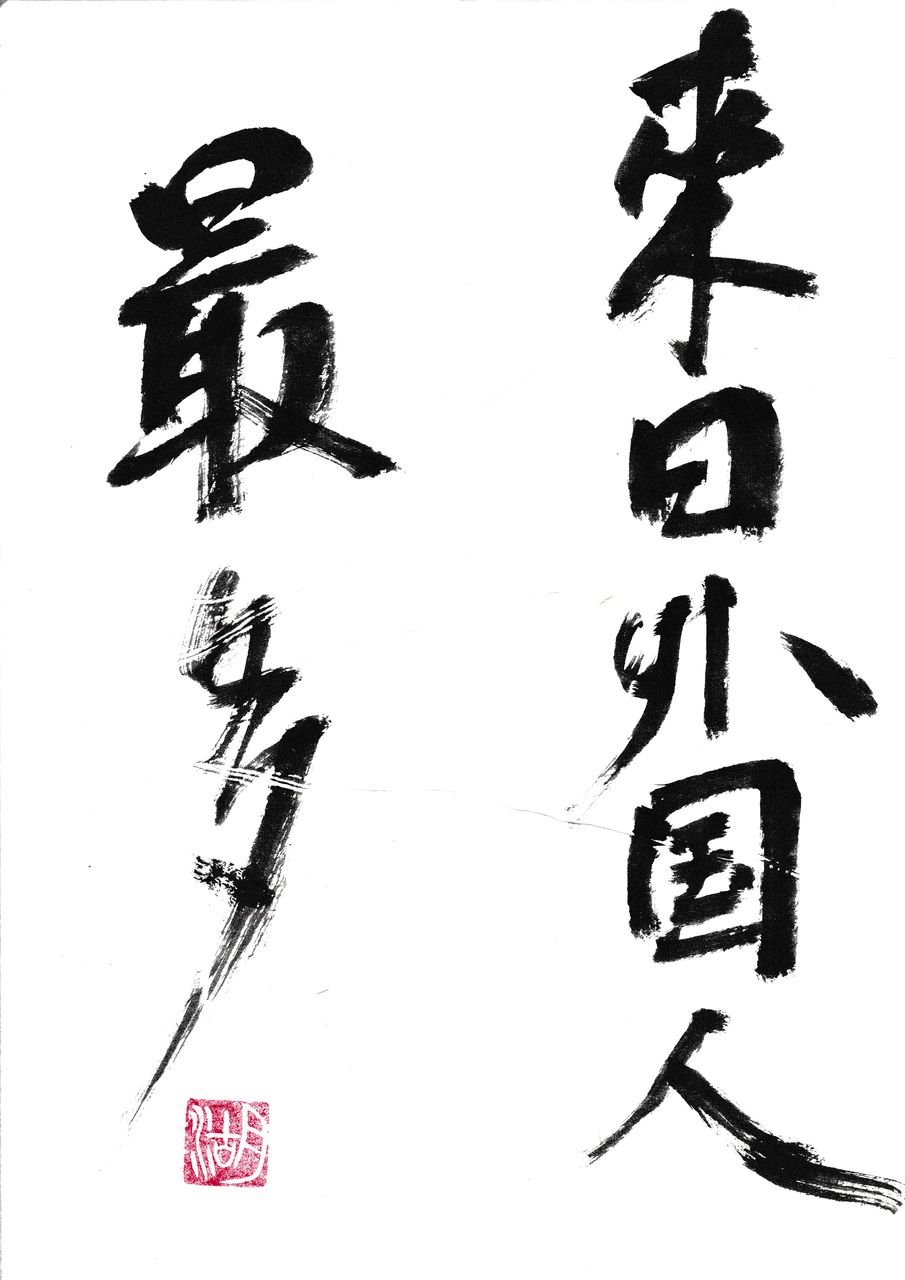 来日外国人
最多
湖